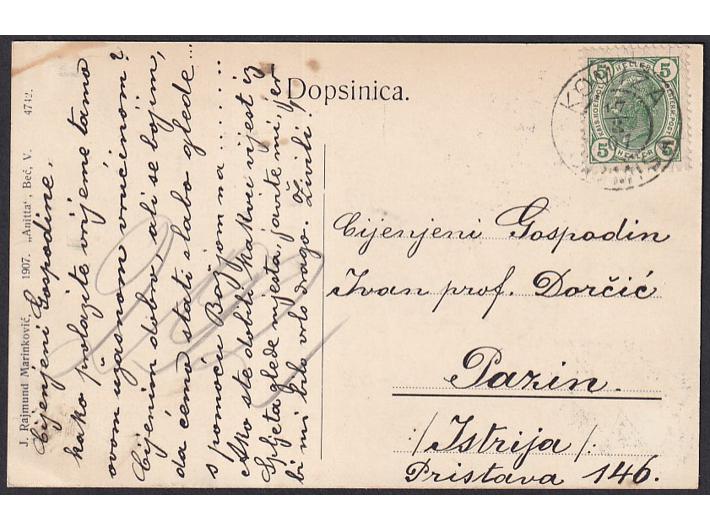 J. Rajmund Marinković, 1907. „Anitta‘, Beč, V. 4742.
Dopsinica.
Cijenjeni Gospodine,
kako prolazite vrijeme tamo
ovom užasnom vrućinom?
Cijenim dobro, ali se bojim,
da ćemo stati slabo glede...
s pomoću Božjom na......
Ako ste dobili kakvu vijest iz
Spljeta glede mjesta, javite mi, jer
bi mi bilo vrlo drago. Živili!
Cijenjeni Gospodin
Ivan prof. Dorčić
Pazin.
/Istrija/.
Pristava 146.
5 HELLER 5
5 HELLER 5